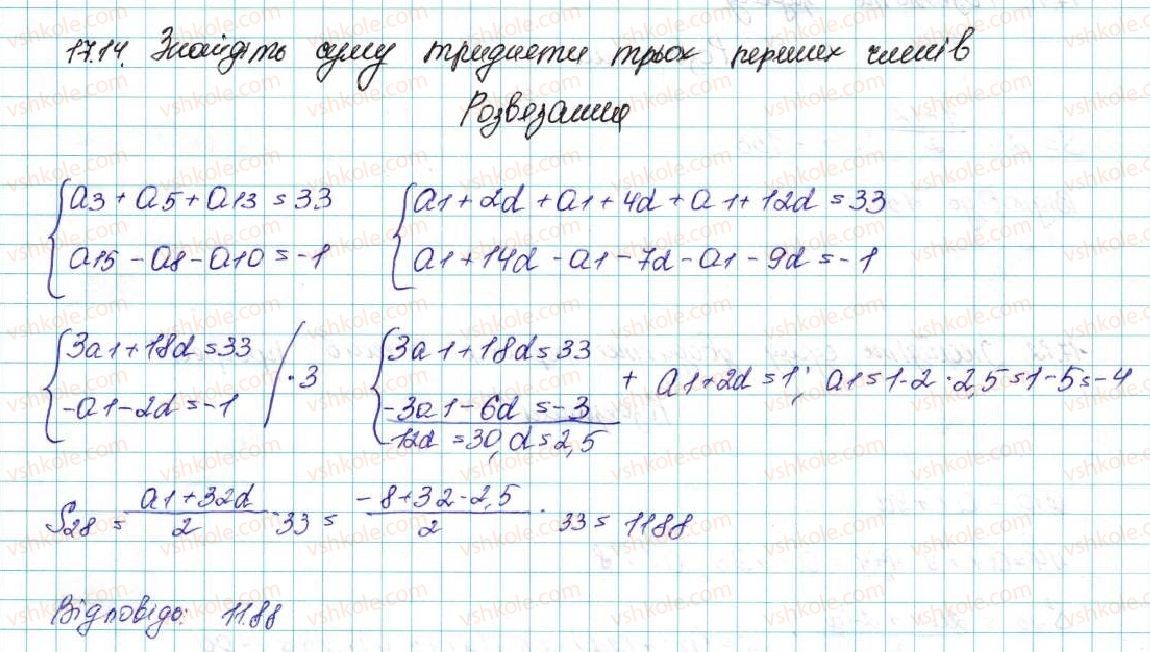 17.14. Знайдіть суму тридцяти трьох перших членів
Розвязання
a3 + a5 + a13 = 33
a15 - a8 - a10 = -1
a1 + 2d + a1 + 4d + a1 + 12d = 33
a1 + 14d - a1 - 7d - a1 - 9d = -1
3a1 + 18d = 33
-a1 - 2d = -1
· 3
3a1 + 18d = 33
-3a1 - 6d = -3
12d = 30, d = 2,5
+ a1 + 2d = 1; a1 = 1 - 2 · 2,5 = 1 - 5 = -4
S28 = (a1 + 32d)/2 · 33 = (-8 + 32 · 2,5)/2 · 33 = 1188
Відповідь: 1188